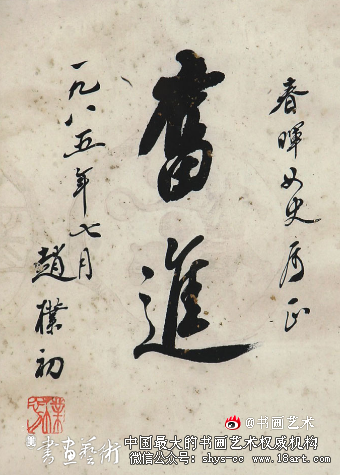 春暉女史属正
奮進
一九八五年七月
趙樸初
@书画艺术
書画藝術
中国最大的书画艺术权威机构
微信公众号: shys-cc www.18art.com